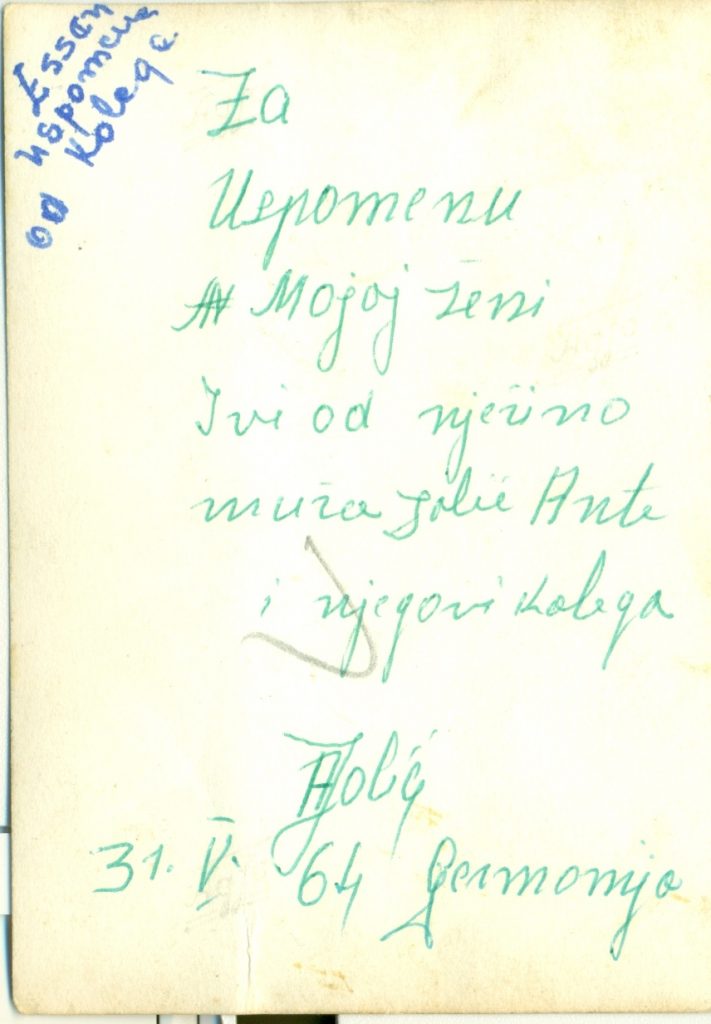 Essen
uspomena
od kolege
Za
Uspomenu
Mojoj ženi
Ivi od nježino
muža Jolić Ante
i njegovi kolega
AJolić
31. V. 64 Germonija